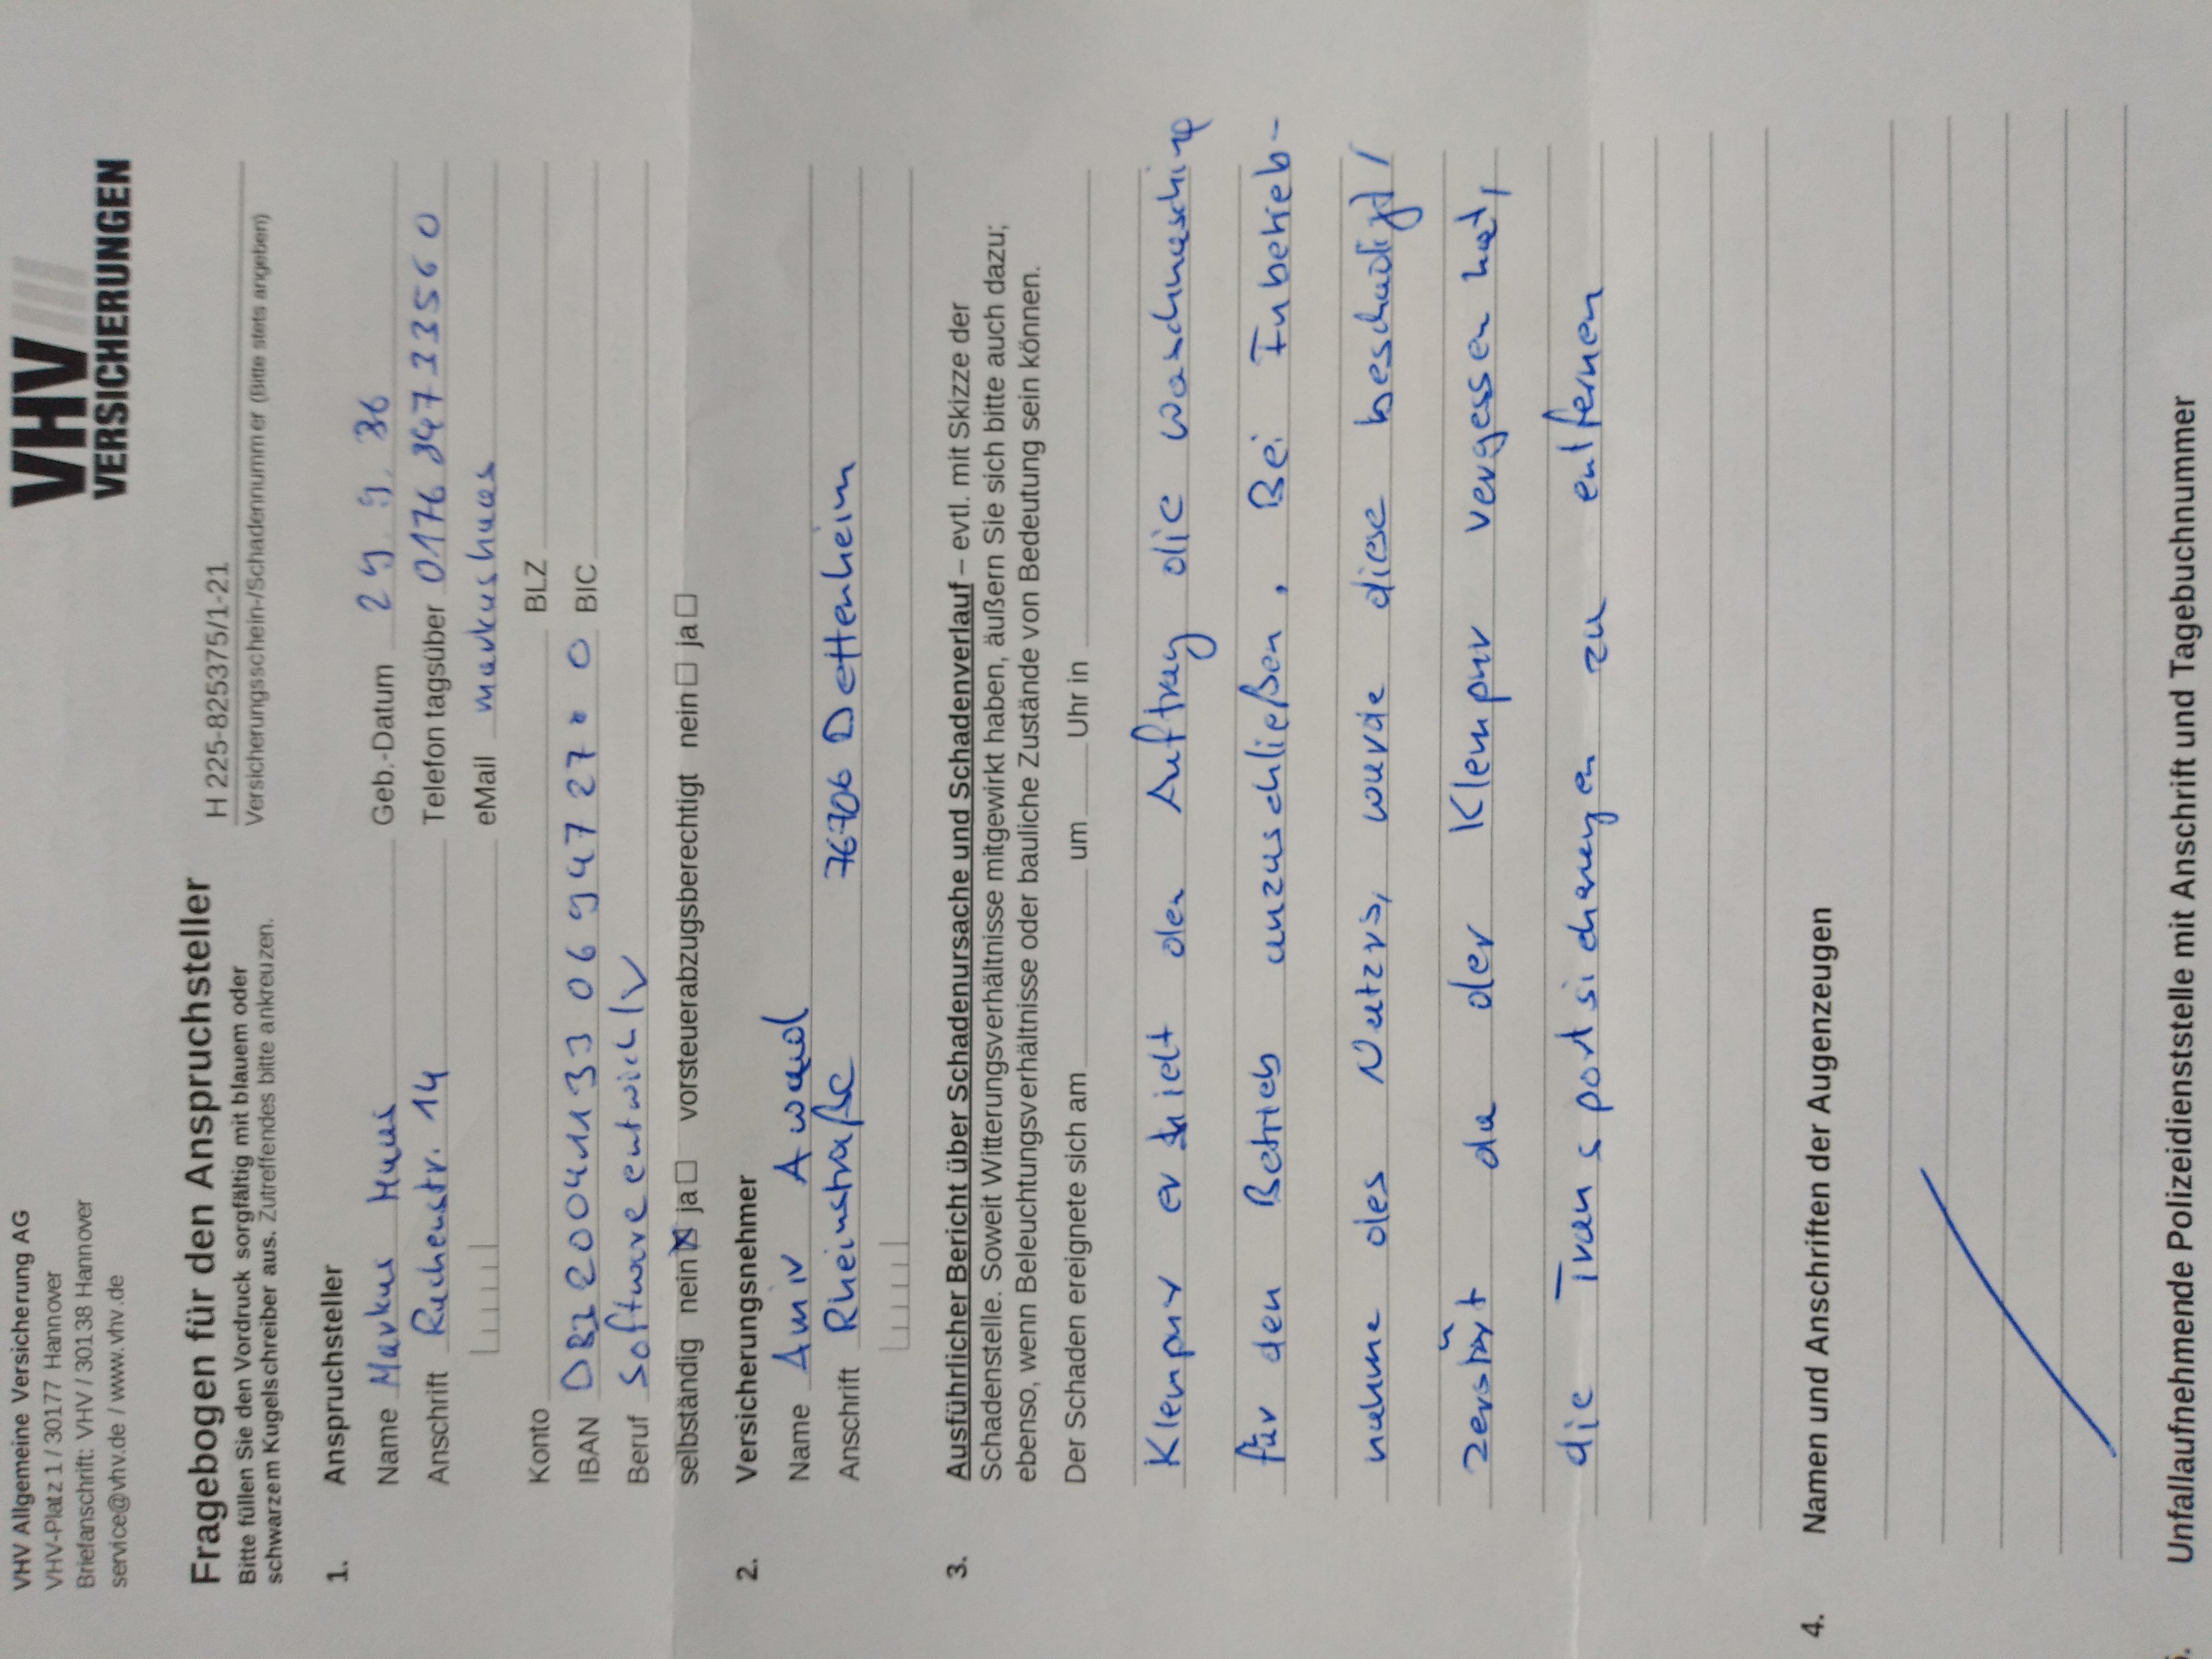 VHV Allgemeine Versicherung AG
VHV-Platz 1 / 30177 Hannover
Briefanschrift: VHV / 30138 Hannover
service@vhv.de / www.vhv.de
VHV
VERSICHERUNGEN
Fragebogen für den Anspruchsteller
Bitte füllen Sie den Vordruck sorgfältig mit blauem oder
schwarzem Kugelschreiber aus. Zutreffendes bitte ankreuzen.
H 225-825375/1-21
Versicherungsschein-/Schadennummer (Bitte stets angeben)
1. Anspruchsteller
Name Markus Huus Geb.-Datum 29.9.86
Anschrift Ruchenstr. 14 Telefon tagsüber
eMail markushuus
Konto BLZ
IBAN BIC
Beruf Softwareentwickler
selbständig nein ☒ ja ☐ vorsteuerabzugsberechtigt nein ☐ ja ☐
2. Versicherungsnehmer
Name Amir Awad
Anschrift Rheinstraße 76706 Dettenheim
3. Ausführlicher Bericht über Schadenursache und Schadenverlauf – evtl. mit Skizze der
Schadenstelle. Soweit Witterungsverhältnisse mitgewirkt haben, äußern Sie sich bitte auch dazu;
ebenso, wenn Beleuchtungsverhältnisse oder bauliche Zustände von Bedeutung sein können.
Der Schaden ereignete sich am um Uhr in
Klempner erhielt den Auftrag die Waschmaschine
für den Betrieb anzuschließen. Bei Inbetrieb-
nahme des Nutzers, wurde diese beschädigt/
zerstört da der Klempner vergessen hat,
die Transportsicherungen zu entfernen
4. Namen und Anschriften der Augenzeugen
5. Unfallaufnehmende Polizeidienststelle mit Anschrift und Tagebuchnummer